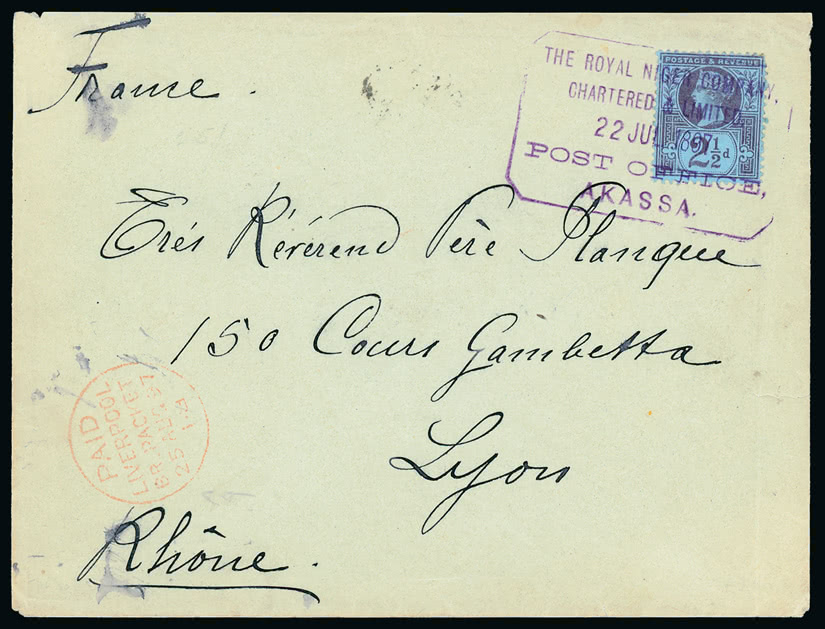 France.
THE ROYAL NIGER COMPANY,
CHARTERED & LIMITED
22 JUL 1897
POST OFFICE,
AKASSA.
POSTAGE & REVENUE
2½d
Trés Révérend Père Planque
150 Cours Gambetta
Lyon
Rhône.
PAID
LIVERPOOL
BR. PACKET
25 AU 97